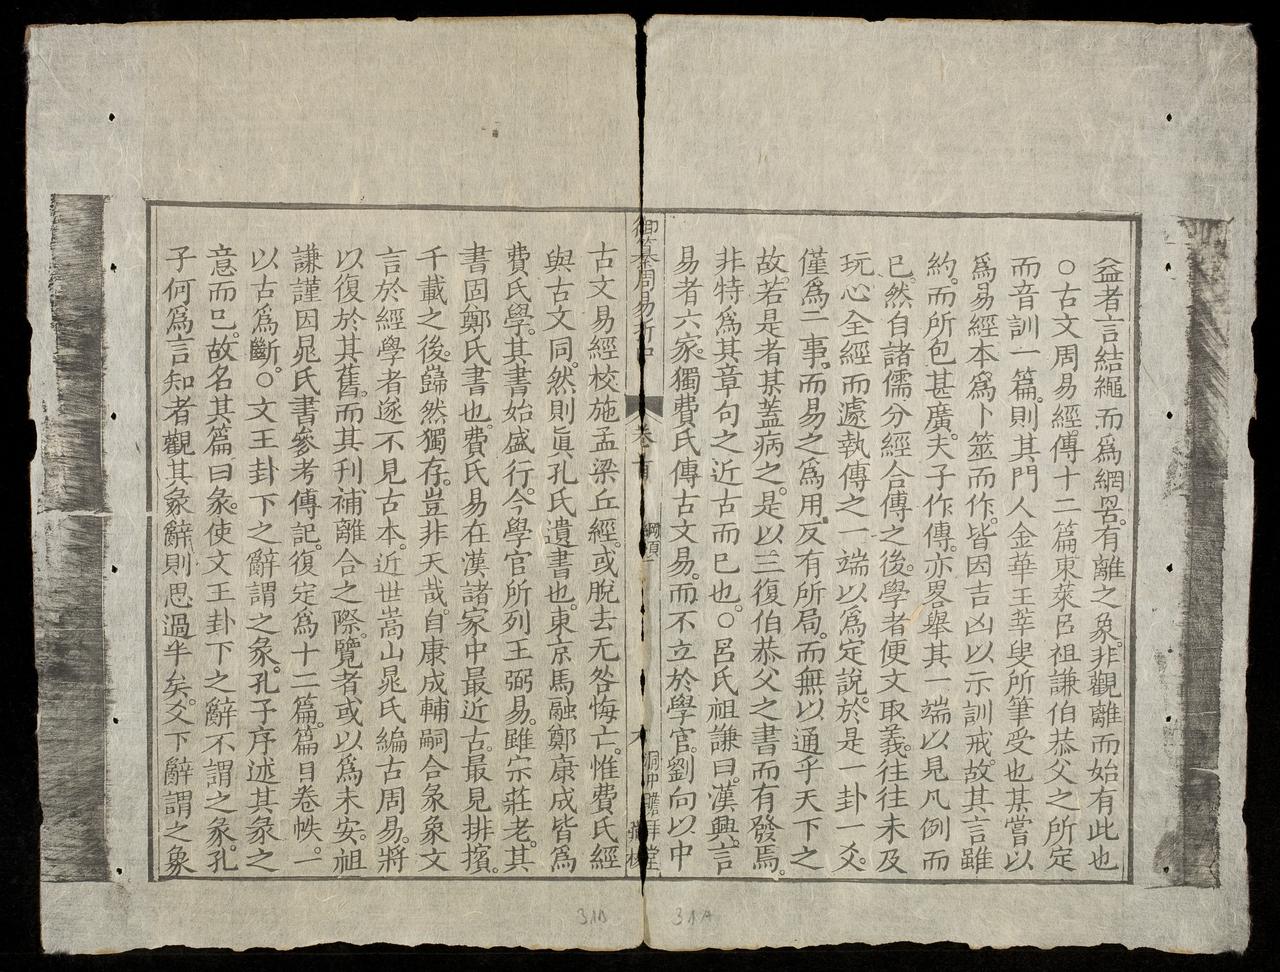 益者言結繩而爲網罟有離之象非觀離而始有此也
○古文周易經傳十二篇東萊呂祖謙伯恭父之所定
而音訓一篇則其門人金華王莘叟所筆受也某嘗以
爲易經本爲卜筮而作皆因吉凶以示訓戒故其言雖
約而所包甚廣夫子作傳亦畧舉其一端以見凡例而
已然自諸儒分經合傳之後學者便文取義往往未及
玩心全經而遽執傳之一端以爲定說於是一卦一爻
僅爲一事而易之爲用反有所局而無以通乎天下之
故若是者某蓋病之是以三復伯恭父之書而有發焉
非特爲其章句之近古而已也○呂氏祖謙曰漢興言
易者六家獨費氏傳古文易而不立於學官劉向以中
御纂周易折中
卷首
綱領一
古文易經校施孟梁丘經或脫去无咎悔亡惟費氏經
與古文同然則眞孔氏遺書也東京馬融鄭康成皆爲
費氏學其書始盛行今學官所列王弼易雖宗莊老其
書固鄭氏書也費氏易在漢諸家中最近古最見排擯
千載之後巋然獨存豈非天哉自康成輔嗣合彖象文
言於經學者遂不見古本近世嵩山晁氏編古周易將
以復於其舊而其刊補離合之際覽者或以爲未安祖
謙謹因晁氏書參考傳記復定爲十二篇篇目卷帙一
以古爲斷○文王卦下之辭謂之彖孔子序述其彖之
意而已故名其篇曰彖使文王卦下之辭不謂之彖孔
子何爲言知者觀其彖辭則思過半矣爻下辭謂之象
31B
31A